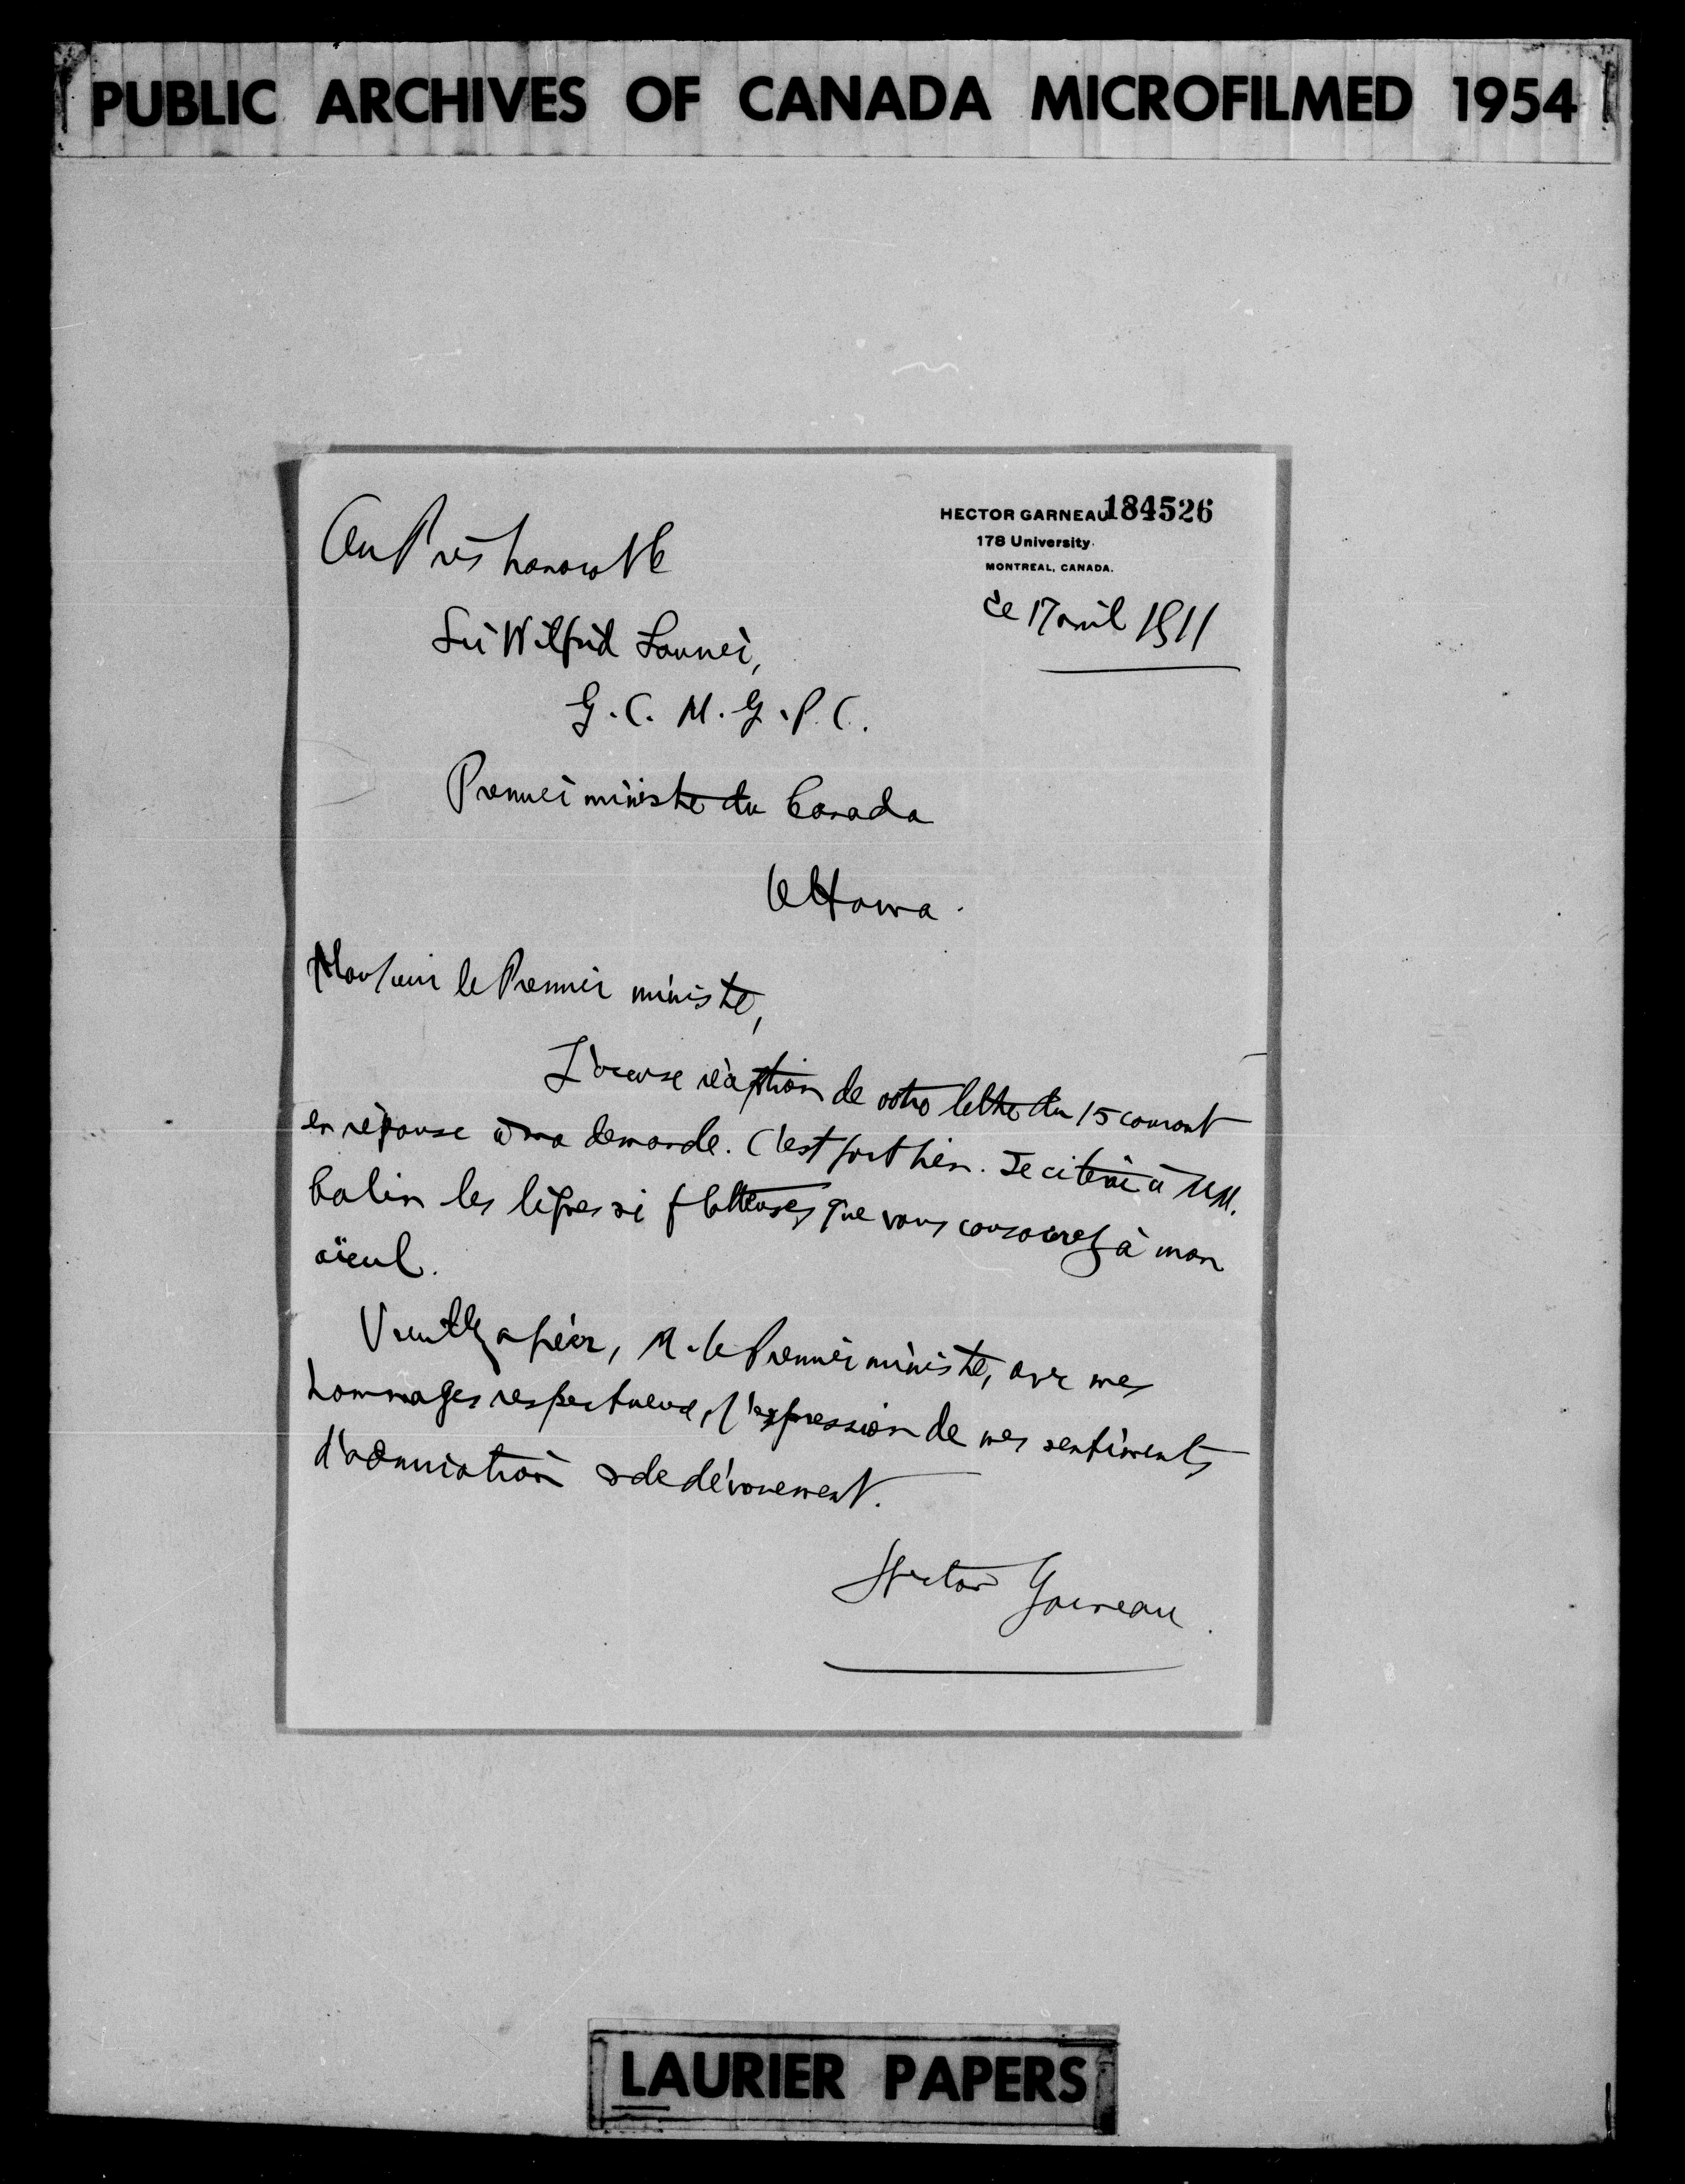 PUBLIC ARCHIVES OF CANADA MICROFILMED 1954
HECTOR GARNEAU 184526
178 University.
MONTREAL, CANADA.
ce 17 avril 1911
Au Très honorable
Sir Wilfrid Laurier,
G.C.M.G.P.C.
Premier ministre du Canada
Ottawa.
Monsieur le Premier ministre,
J'accuse réception de votre lettre du 15 courant
en réponse à ma demande. C'est fort bien. Je citerai à MM.
Calin les lignes si flatteuses que vous consacrez à mon
aïeul.
Veuillez agréer, M. le Premier ministre, avec mes
hommages respectueux, l'expression de mes sentiments
d'admiration & de dévouement.
Hector Garneau.
LAURIER PAPERS